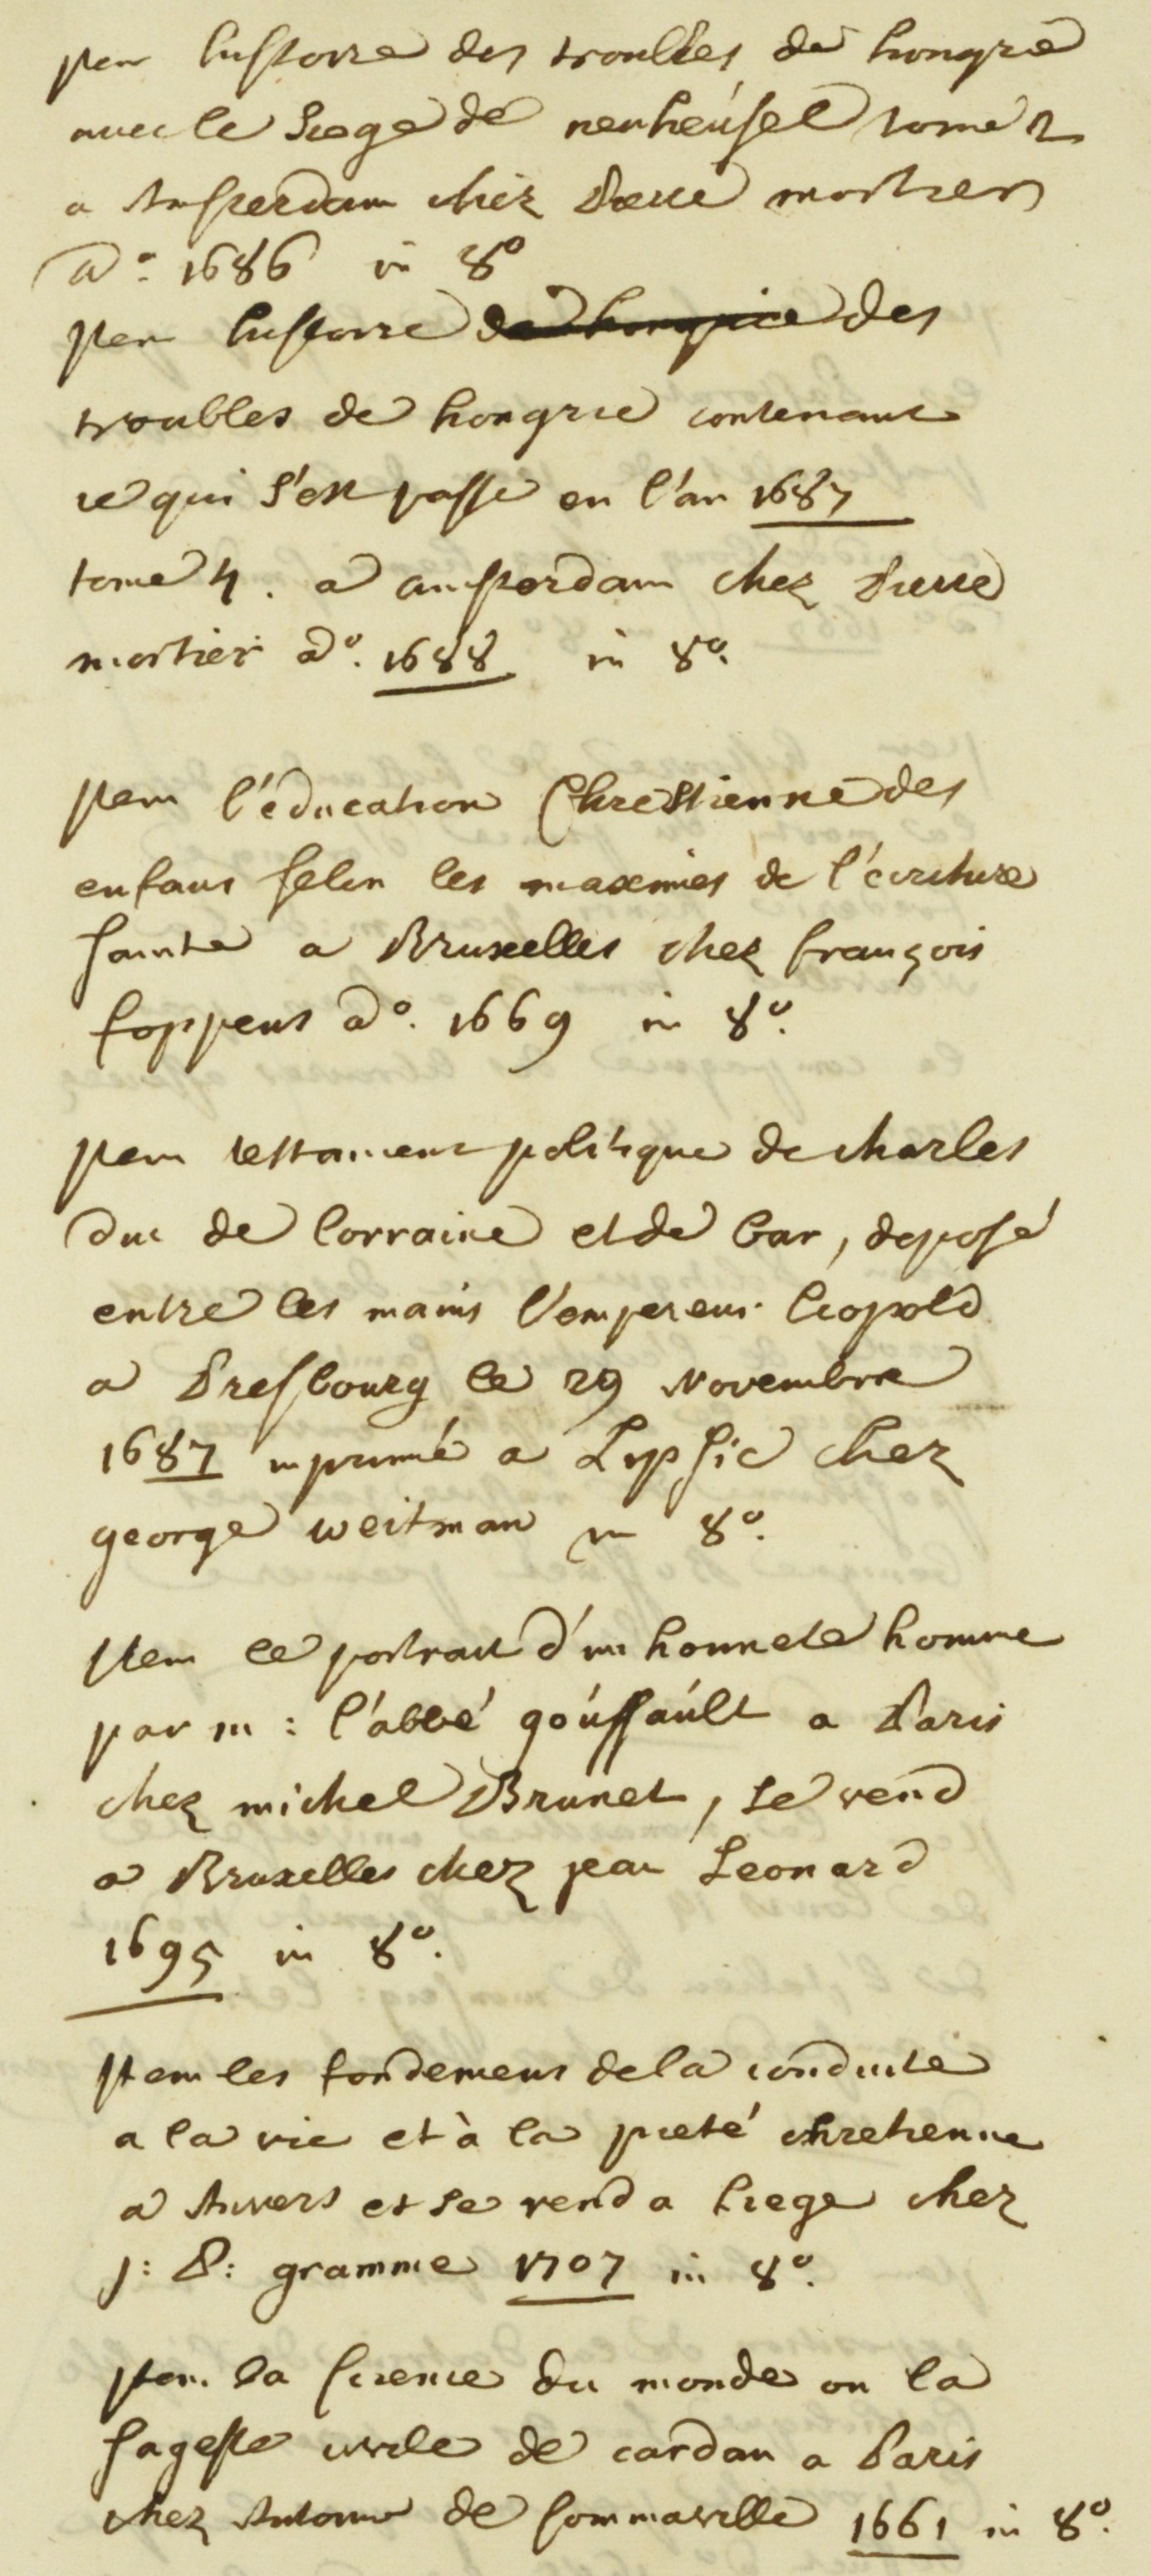 Item histoire des troubles de hongrie
avec le siege de neuheúsel tome 2
a Amsterdam chez Pierre mortier
A° 1686 in 8°
Item histoire de hongrie des
troubles de hongrie contenant
ce qui s'est passé en l'an 1687
tome 4. a amsterdam chez Pierre
mortier a°. 1688 in 8°.
Item l'éducation Chrestienne des
enfans selon les maximes de l'écriture
sainte a Bruxelles chez françois
foppens a°. 1669 in 8°.
Item testament politique de charles
Duc de lorraine et de bar, deposé
entre les mains l'empereur leopold
a Presbourg le 29 Novembre
1687 imprimé a Lipsic chez
george weitman in 8°.
Item le portrait d'un honnete homme
par m: l'abbé goússaúlt a Paris
chez michel Brunet, se vend
a Bruxelles chez jean Leonard
1695 in 8°.
Item les fondemens de la conduite
a la vie et à la pieté chretienne
a Anvers et se vend a liege chez
j: P: gramme 1707 in 8°.
Item la science du monde ou la
sagesse civile de cardan a Paris
chez Antoine de sommaville 1661 in 8°.